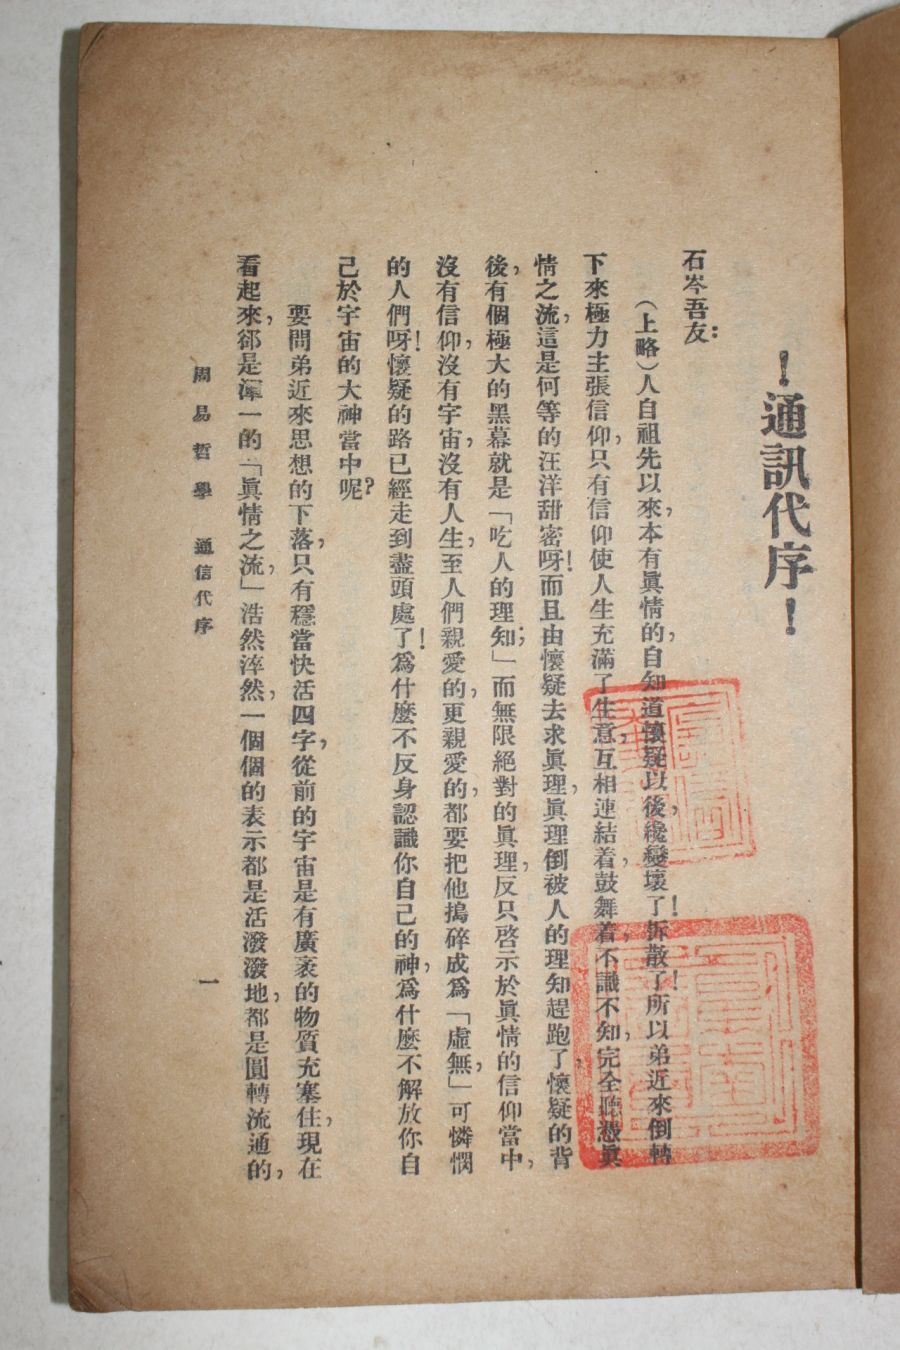 ！通訊代序！
石岑吾友：
（上略）人自祖先以來，本有眞情的，自知道懷疑以後，纔變壞了！拆散了！所以弟近來倒轉
下來極力主張信仰，只有信仰使人生充滿了生意，互相連結着，鼓舞着，不識不知，完全聽憑眞
情之流，這是何等的汪洋甜密呀！而且由懷疑去求眞理，眞理倒被人的理知趕跑了，懷疑的背
後，有個極大的黑幕就是「吃人的理知；」而無限絕對的眞理，反只啓示於眞情的信仰當中，
沒有信仰，沒有宇宙，沒有人生，至人們親愛的，更親愛的，都要把他搗碎成爲「虛無，」可憐憫
的人們呀！懷疑的路已經走到盡頭處了！爲什麼不反身認識你自己的神，爲什麼不解放你自
己於宇宙的大神當中呢？
要問弟近來思想的下落，只有穩當快活四字，從前的宇宙是有廣袤的物質充塞住，現在
看起來，郤是渾一的「眞情之流，」浩然滓然，一個個的表示都是活潑潑地，都是圓轉流通的，
周易哲學　通信代序　一